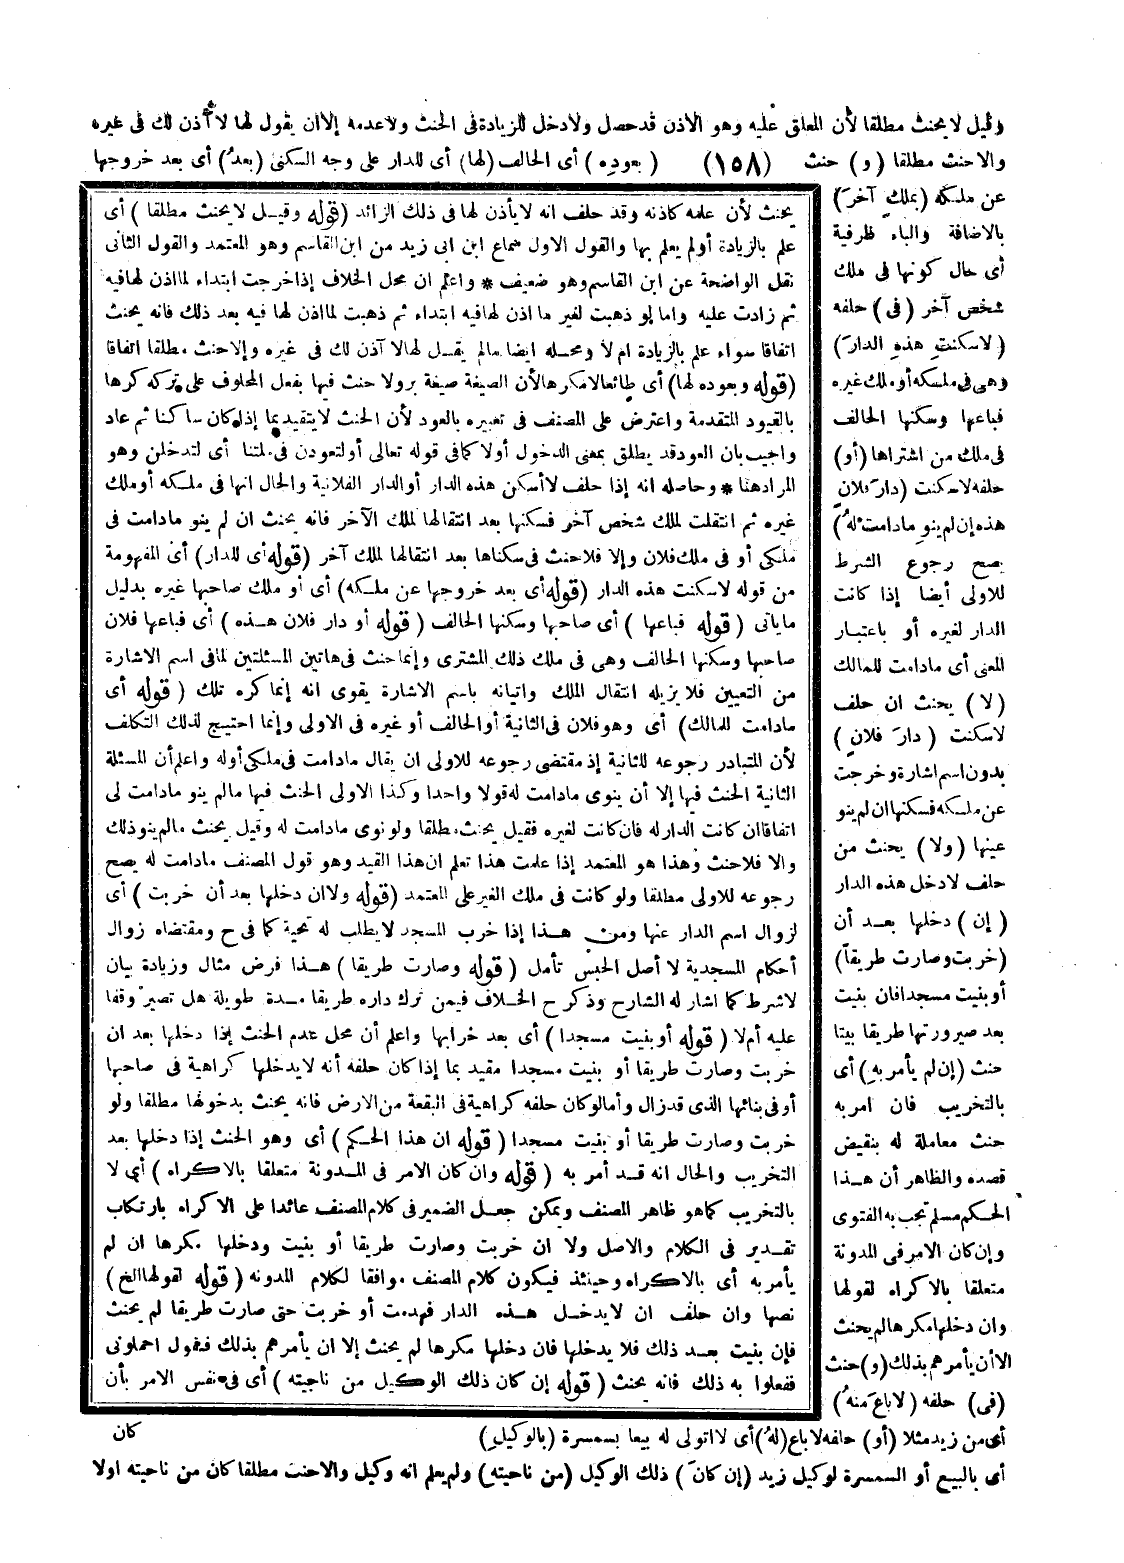 وقيل لا يحنث مطلقا لأن المعلق عليه وهو الاذن قد حصل ولا دخل للزيادة فى الحنث ولا عدمه إلا ان يقول لها لا آذن لك فى غيره
والا حنث مطلقا (و) حنث (١٥٨) (بعوده) أى الحالف (لها) أى للدار على وجه السكنى (بعدُ) أى بعد خروجها
عن ملكه (بملكِ آخرَ)
بالاضافة والباء ظرفية
أى حال كونها فى ملك
شخص آخر (فى) حلفه
(لاسكنتِ هذهِ الدارَ)
وهى فى ملكه أو ملك غيره
فباعها وسكنها الحالف
فى ملك من اشتراها (أو)
حلفه لاسكنت (دارَ فلانٍ
هذه إن لم ينوِ مادامت لهُ)
يصح رجوع الشرط
للاولى أيضا إذا كانت
الدار لغيره أو باعتبار
المعنى أى مادامت للمالك
(لا) يحنث ان حلف
لاسكنت (دارَ فلانٍ)
بدون اسم اشارة وخرجت
عن ملكه فسكنها ان لم ينو
عينها (ولا) يحنث من
حلف لا دخل هذه الدار
(إن) دخلها بعد أن
(خربت وصارت طريقاً)
أو بنيت مسجدا فان بنيت
بعد صيرورتها طريقا بيتا
حنث (إن لم يأمر بهِ) أى
بالتخريب فان امر به
حنث معاملة له بنقيض
قصده والظاهر أن هذا
الحكم مسلم تجب به الفتوى
وإن كان الامر فى المدونة
متعلقا بالاكراه لقولها
وان دخلها مكرها لم يحنث
الا أن يأمرهم بذلك (و) حنث
(فى) حلفه (لا باعَ منهُ)
أى من زيد مثلا (أو) حلفه لا باع (لهُ) أى لا تولى له بيعا بسمسرة (بالوكيلِ)
أى بالبيع أو السمسرة لوكيل زيد (إن كانَ) ذلك الوكيل (من ناحيته) ولم يعلم انه وكيل والا حنث مطلقا كان من ناحيته اولا
يحنث لأن علمه كاذنه وقد حلف انه لا يأذن لها فى ذلك الزائد (قوله وقيل لا يحنث مطلقا) أى
علم بالزيادة أو لم يعلم بها والقول الاول سماع ابن ابى زيد من ابن القاسم وهو المعتمد والقول الثانى
نقل الواضحة عن ابن القاسم وهو ضعيف * واعلم ان محل الخلاف إذا خرجت ابتداء لما اذن لها فيه
ثم زادت عليه واما لو ذهبت لغير ما اذن لها فيه ابتداء ثم ذهبت لما اذن لها فيه بعد ذلك فانه يحنث
اتفاقا سواء علم بالزيادة ام لا ومحله ايضا مالم يقل لها لا آذن لك فى غيره وإلا حنث مطلقا اتفاقا
(قوله وبعوده لها) أى طائعا لا مكرها لأن الصيغة صيغة بر ولا حنث فيها بفعل المحلوف على تركه كرها
بالقيود المتقدمة واعترض على المصنف فى تعبيره بالعود لأن الحنث لا يتقيد بما إذا كان ساكنا ثم عاد
واجيب بان العود قد يطلق بمعنى الدخول أولا كما فى قوله تعالى أو لتعودن فى ملتنا أى لتدخلن وهو
المراد هنا * وحاصله انه إذا حلف لا أسكن هذه الدار أو الدار الفلانية والحال انها فى ملكه أو ملك
غيره ثم انتقلت لملك شخص آخر فسكنها بعد انتقالها لملك الآخر فانه يحنث ان لم ينو مادامت فى
ملكى أو فى ملك فلان وإلا فلا حنث فى سكناها بعد انتقالها لملك آخر (قوله أى للدار) أى المفهومة
من قوله لا سكنت هذه الدار (قوله أى بعد خروجها عن ملكه) أى أو ملك صاحبها غيره بدليل
ما يأتى (قوله فباعها) أى صاحبها وسكنها الحالف (قوله أو دار فلان هذه) أى فباعها فلان
صاحبها وسكنها الحالف وهى فى ملك ذلك المشترى وإنما حنث فى هاتين المسئلتين لما فى اسم الاشارة
من التعيين فلا يزيله انتقال الملك واتيانه باسم الاشارة يقوى انه إنما كره تلك (قوله أى
مادامت للمالك) أى وهو فلان فى الثانية أو الحالف أو غيره فى الاولى وإنما احتيج لذلك التكلف
لأن المتبادر رجوعه للثانية إذ مقتضى رجوعه للاولى ان يقال مادامت فى ملكى أوله واعلم أن المسئلة
الثانية الحنث فيها إلا أن ينوى مادامت له قولا واحدا وكذا الاولى الحنث فيها مالم ينو مادامت لى
اتفاقا ان كانت الدار له فان كانت لغيره فقيل يحنث مطلقا ولو نوى مادامت له وقيل يحنث مالم ينو ذلك
والا فلا حنث وهذا هو المعتمد إذا علمت هذا تعلم ان هذا القيد وهو قول المصنف مادامت له يصح
رجوعه للاولى مطلقا ولو كانت فى ملك الغير على المعتمد (قوله ولا ان دخلها بعد أن خربت) أى
لزوال اسم الدار عنها ومن هذا إذا خرب المسجد لا يطلب له تحية كما فى ح ومقتضاه زوال
أحكام المسجدية لا أصل الحبس تأمل (قوله وصارت طريقا) هذا فرض مثال وزيادة بيان
لا شرط كما اشار له الشارح وذكر ح الخلاف فيمن ترك داره طريقا مدة طويلة هل تصير وقفا
عليه أم لا (قوله أو بنيت مسجدا) أى بعد خرابها واعلم أن محل عدم الحنث إذا دخلها بعد ان
خربت وصارت طريقا أو بنيت مسجدا مقيد بما إذا كان حلفه أنه لا يدخلها كراهية فى صاحبها
أو فى بنائها الذى قد زال وأما لو كان حلفه كراهية فى البقعة من الارض فانه يحنث بدخولها مطلقا ولو
خربت وصارت طريقا أو بنيت مسجدا (قوله ان هذا الحكم) أى وهو الحنث إذا دخلها بعد
التخريب والحال انه قد أمر به (قوله وان كان الامر فى المدونة متعلقا بالاكراه) أى لا
بالتخريب كما هو ظاهر المصنف ويمكن جعل الضمير فى كلام المصنف عائدا على الاكراه بارتكاب
تقدير فى الكلام والاصل ولا ان خربت وصارت طريقا أو بنيت ودخلها مكرها ان لم
يأمر به أى بالاكراه وحينئذ فيكون كلام المصنف موافقا لكلام المدونه (قوله لقولها الخ)
نصها وان حلف ان لا يدخل هذه الدار فهدمت أو خربت حتى صارت طريقا لم يحنث
فإن بنيت بعد ذلك فلا يدخلها فان دخلها مكرها لم يحنث إلا ان يأمرهم بذلك فيقول احملونى
ففعلوا به ذلك فانه يحنث (قوله إن كان ذلك الوكيل من ناحيته) أى فى نفس الامر بأن
كان